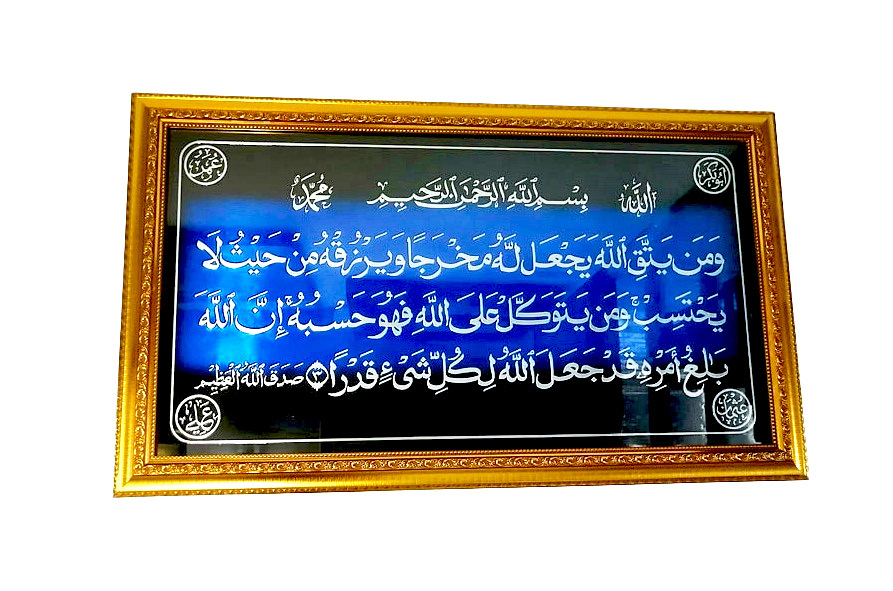 أبو بكر
عمر
الله بِسْمِ ٱللَّهِ ٱلرَّحْمَٰنِ ٱلرَّحِيمِ محمد
وَمَن يَتَّقِ ٱللَّهَ يَجْعَل لَّهُۥ مَخْرَجًا وَيَرْزُقْهُ مِنْ حَيْثُ لَا
يَحْتَسِبُ ۚ وَمَن يَتَوَكَّلْ عَلَى ٱللَّهِ فَهُوَ حَسْبُهُۥٓ ۚ إِنَّ ٱللَّهَ
بَٰلِغُ أَمْرِهِۦ ۚ قَدْ جَعَلَ ٱللَّهُ لِكُلِّ شَىْءٍ قَدْرًا ٣ صَدَقَ ٱللَّهُ ٱلْعَظِيم
عثمان
علي